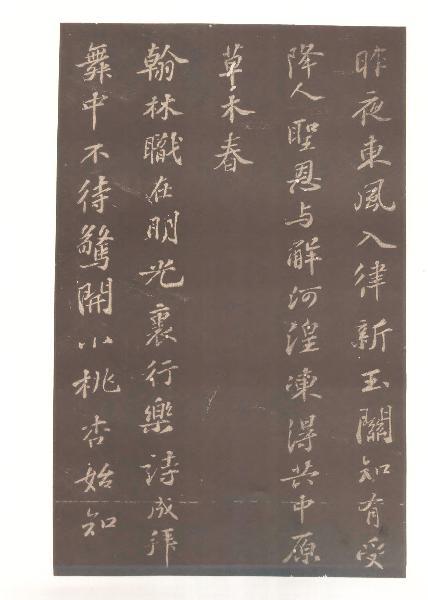 昨夜東風入律新玉關知有受
降人聖恩与解河湟凍得共中原
草木春
翰林職在明光裏行樂詩成拜
舞中不待驚開小桃杏始知